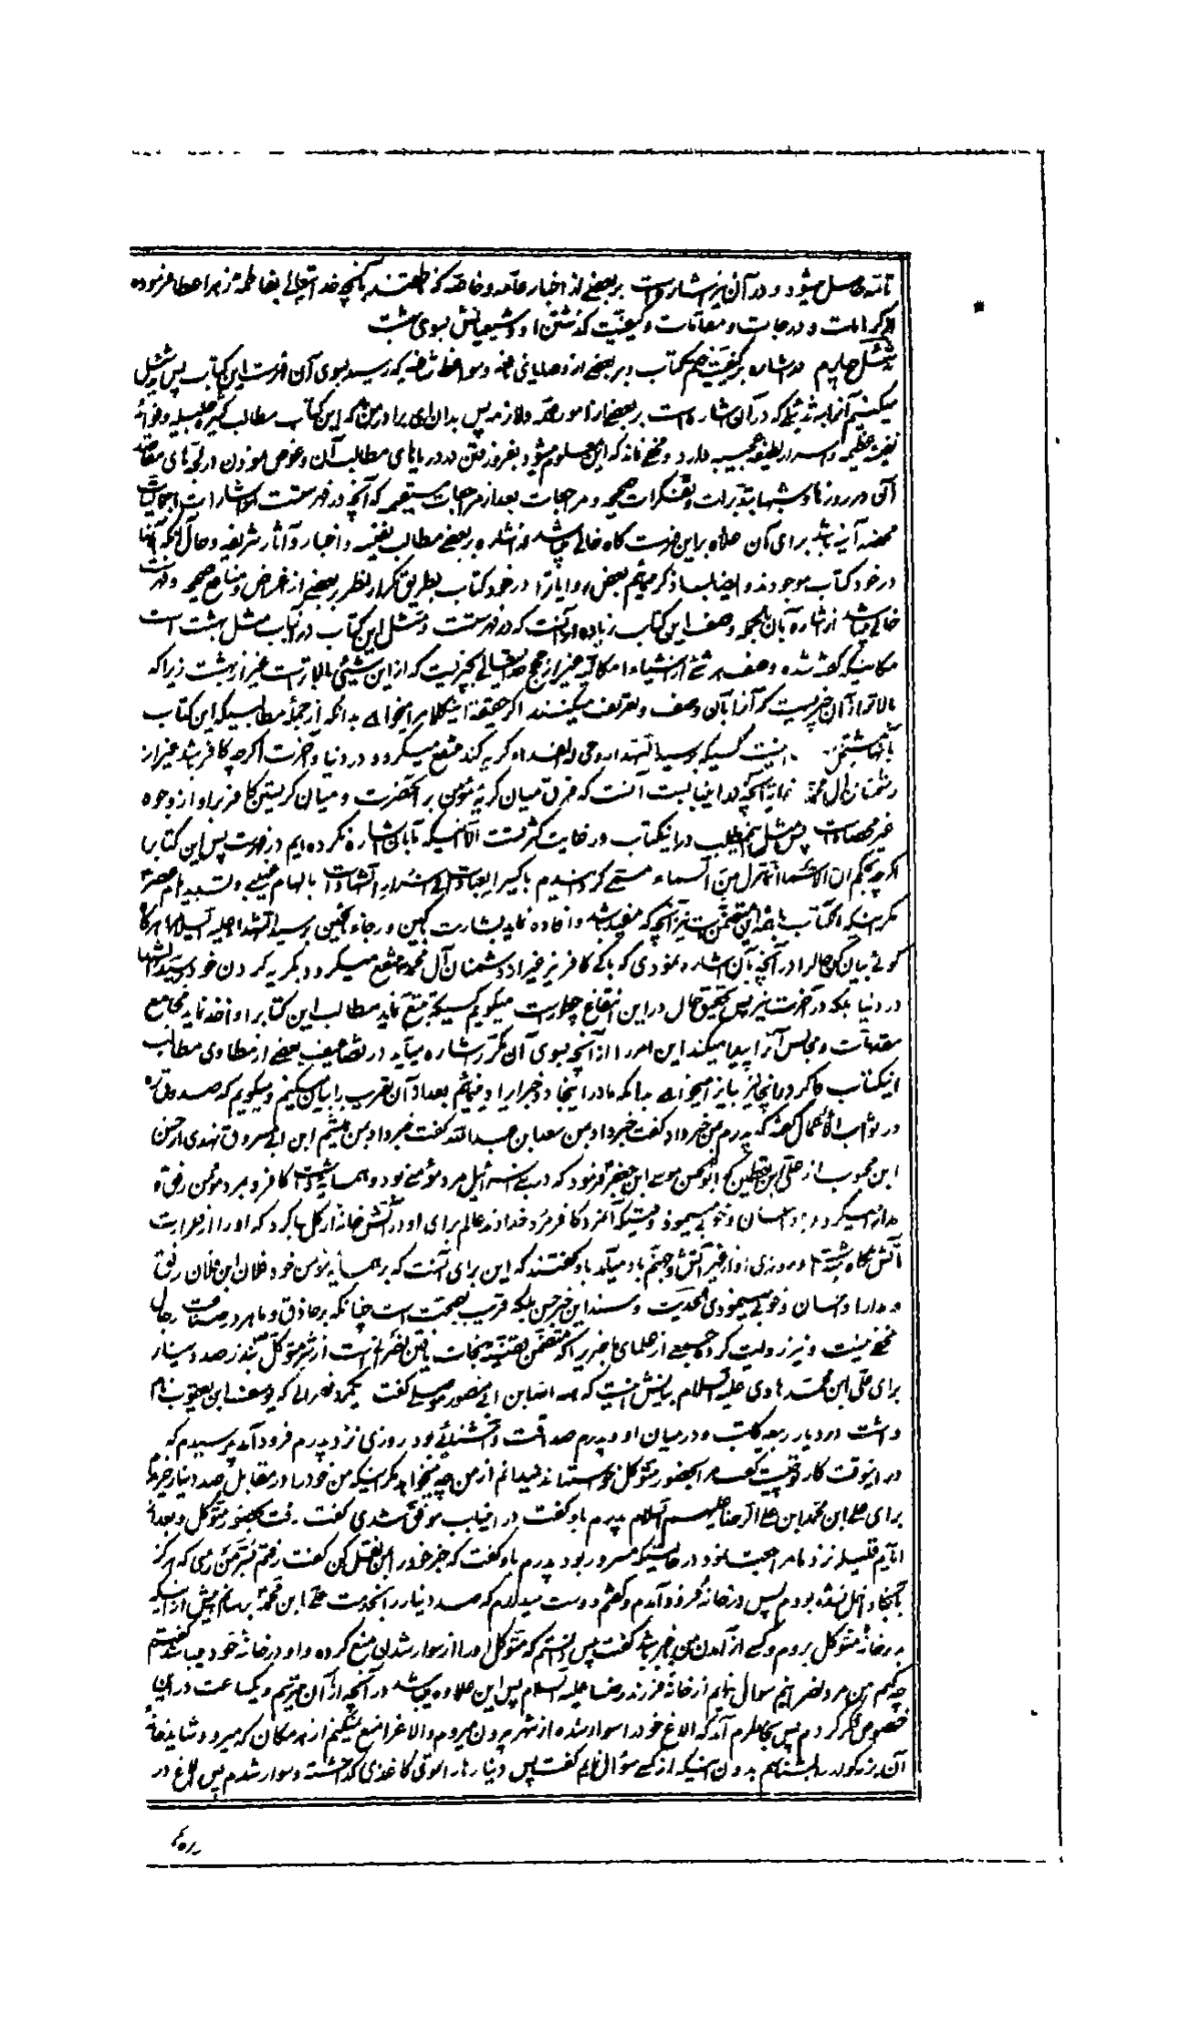 تامه حاصل میشود و در آن نیز اشاره است بر بعضی از اخبار عامه و خاصه که ناطقند بآنچه خداتعالی بفاطمه زهرا عطا فرموده
از کرامات و درجات و مقامات و کیفیت گذشتن او و شیعیانش بسوی بهشت
تذئیل چهارم در اشاره بر کیفیت ختم کتاب و بر بعضی از وصایای و مواعظ که رسید بسوی آن فهرست این کتاب پس تذئیل
میکنیم آنرا به تذئیلی که در آن اشاره است بر بعض از امور لازمه پس بدان ای برادر من که این کتاب مطالب کثیره جلیله و فوائد
نفیسه عظیمه و اسرار لطیفه عجیبه دارد و مخفی نماند که این معلوم میشود بفرو رفتن در دریاهای مطالب آن و غوص نمودن در لجه‌های مقاصد
آن در روزها و شبها بتدبرات و تفکرات صحیحه و مراجعات بعد از مراجعات مستقیمه که آنچه در فهرست اشارات اجمالیات
محضه آینه باشد برای آن علاوه بر این فهرست گاه خالی میباشد از اشاره بر بعضی مطالب نفیسه و اخبار و آثار شریفه و حال آنکه آنها
در خود کتاب موجودند و ایضا بسا ذکر میکنیم بعض روایات را در خود کتاب بطریق تکرار نظر ببعضی از اغراض و منافع صحیحه و فهرست
خالی میباشد از اشاره بآن بالجمله وصف این کتاب زیاده از آنست که در فهرست و مثل این کتاب در این باب مثل بهشت است
چنانکه گفته شده وصف هر شئی از اشیاء امکانیه غیر از حجج خداتعالی بچیزیست که از این شئی بالاتر است غیر از بهشت زیرا که
بالاتر از آن چیزی نیست که آنرا بآن وصف و تعریف میکنند اگر حقیقة اینکلام را میخواهی بدانکه از جمله مطالبیکه این کتاب
بآنها مشتمل اینست کسیکه بر سید الشهداء روحی له الفداء گریه کند منتفع میگردد در دنیا و آخرت اگرچه کافر باشد غیر از
دشمنان آل محمد نهایة آنچه در اینباب است آنست که فرق میان گریه مؤمن بر آنحضرت و میان گریستن کافر بر او از وجوه
غیر محصور است پس مثل این مطلب در اینکتاب در غایت کثرتست الا آنیکه ما بآن اشاره نکرده‌ایم در فهرست پس این کتاب را
اگرچه بحکم ان الاسماء تنزل من السماء مسمی گردانیدیم باکسیر العبادات فی اسرار الشهادات بالهام غیبی و تسدید امام عصر
مگر اینکه اینکتاب باشد این متضمن است نیز آنچه که مفید باشد و افاده نماید بشارت بگریین و رجاء بمحبین بر سید الشهداء علیه السلام را هرگاه
گوئی بیان کن حال را در آنچه بآن اشاره نمودی که باکی کافر نیز غیر از دشمنان آل محمد منتفع میگردد بگریه کردن خود بر سید الشهداء
در دنیا بلکه در آخرت نیز پس تحقیق حال در این انتفاع چطور است میگویم کسیکه تتبع نماید مطالب این کتاب را و اخذ نماید مجامع
مقدمات و مجالس آنرا پیدا میکند این امور را از آنچه بسوی آن مکرر اشاره میآید در تضاعیف بعضی از مطاوی مطالب
اینکتاب هرگاه در اینجا نیز بیان میخواهی بدانکه ما در اینجا دو خبر ایراد مینمائیم بعد از آن تقریب را بیان میکنیم و میگویم که صدوق ره
در ثواب الاعمال گفته که پدرم من خبر داد گفت خبر داد بمن سعد ابن عبدالله گفت خبر داد بمن هیثم ابن ابی مسروق نهدی از حسن
ابن محبوب از علی ابن یقطین که ابوالحسن موسی ابن جعفر فرمود که در بنی اسرائیل مرد مؤمنی بود و همسایه داشت کافر و بر مرد مؤمن رفق و
مدارا میکرد و بر او احسان و خوبی مینمود وقتیکه آنمرد کافر مرد خداوند عالم برای او در آتش خانه از گل بنا کرد که او را از حرارت
آتش نگاه میداشت و روزی او از غیر آتش و جهنم باو میآمد باو گفتند که این برای آنست که بر همسایه مؤمن خود فلان ابن فلان رفق
و مدارا و احسان و خوبی مینمودی الحدیث و سند این خبر حسن بلکه قریب بصحت است چنانکه بر حاذق و ماهر در صناعت رجال
مخفی نیست و نیز روایت کرده جمعی از علمای ما خبری را که متضمن قضیه نجات یافتن نصرانی است از شر متوکل بنذر صد دینار
برای علی ابن محمد هادی علیه السلام بیانش اینست که هبة الله ابن ابی منصور موصلی گفت یکمرد نصرانی که یوسف ابن یعقوب نام
داشت در دیار ربیعه کاتب و در میان او و پدرم صداقت و آشنائی بود روزی نزد پدرم فرود آمد پرسیدم که
در اینوقت کار تو چیست گفت مرا بحضور متوکل خواستند نمیدانم از من چه میخواهد مگر اینکه من خود را در مقابل صد دینار خریدم
برای علی ابن محمد ابن علی الرضا علیهم السلام پدرم باو گفت در اینباب موفق شدی گفت رفت بحضور متوکل و بعد از
ایام قلیله نزد ما مراجعت نمود در حالیکه مسرور بود پدرم باو گفت که خبر خود را بمن نقل کن گفت رفتم بسر من رای که هرگز
بآنجا داخل نشده بودم پس در خانه فرود آمدم و گفتم دوست میدارم که صد دینار را بخدمت علی ابن محمد برسانم پیش از اینکه
بدر خانه متوکل بروم و کسی از آمدن من خبر باشد گفت پس دانستم که متوکل او را از سوار شدن منع کرده و او در خانه خود میباشد گفتم
چه کنم من مرد نصرانیم سوال نمایم از خانه فرزند رضا علیه السلام پس این علاوه میباشد در آنچه از آن میترسم و یکساعت در این
خصوص فکر کردم پس بخاطرم آمد که الاغ خود را سوار شده از شهر بیرون میروم و الاغ را منع نمیکنم از هر مکان که میرود شاید خانه
آن بزرگوار را بشناسم بدون اینکه از کسی سؤال نمایم گفت پس دینارها را توی کاغذی گذاشته و سوار شدم پس الاغ در